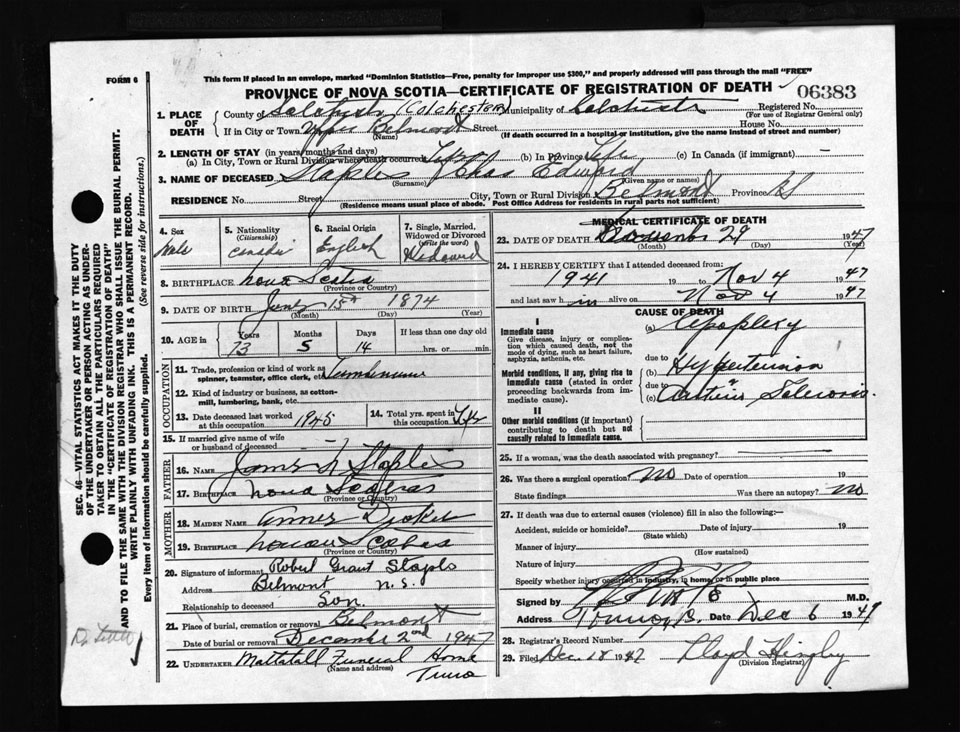 FORM 6
This form if placed in an envelope, marked "Dominion Statistics—Free, penalty for improper use $300," and properly addressed will pass through the mail "FREE"
PROVINCE OF NOVA SCOTIA—CERTIFICATE OF REGISTRATION OF DEATH
06383
SEC. 46—VITAL STATISTICS ACT MAKES IT THE DUTY
OF THE UNDERTAKER OR PERSON ACTING AS UNDER-
TAKER TO OBTAIN ALL THE PARTICULARS REQUIRED
IN THE "CERTIFICATE OF REGISTRATION OF DEATH"
AND TO FILE THE SAME WITH THE DIVISION REGISTRAR WHO SHALL ISSUE THE BURIAL PERMIT.
WRITE PLAINLY WITH UNFADING INK. THIS IS A PERMANENT RECORD.
Every item of information should be carefully supplied. (See reverse side for instructions.)
1. PLACE OF DEATH
County of Colchester (Colchester) Municipality of Colchester Registered No.
(For use of Registrar General only)
If in City or Town Upper Belmont Street House No.
(Name) (If death occurred in a hospital or institution, give the name instead of street and number)
2. LENGTH OF STAY (in years, months and days)
(a) In City, Town or Rural Division where death occurred Life (b) In Province Life (c) In Canada (if immigrant) —
3. NAME OF DECEASED Staples Edward
(Surname) (Given name or names)
RESIDENCE No. Street City, Town or Rural Division Belmont Province NS
(Residence means usual place of abode. Post Office Address for residents in rural parts not sufficient)
4. Sex
Male
5. Nationality
(Citizenship)
Canadian
6. Racial Origin
English
7. Single, Married, Widowed or Divorced
(Write the word)
Widowed
8. BIRTHPLACE Nova Scotia
(Province or Country)
9. DATE OF BIRTH June 15th 1874
(Month) (Day) (Year)
10. AGE in
Years 73
Months 5
Days 14
If less than one day old
hrs. or min.
OCCUPATION
11. Trade, profession or kind of work as spinner, teamster, office clerk, etc. Lumberman
12. Kind of industry or business, as cotton-mill, lumbering, bank, etc.
13. Date deceased last worked at this occupation 1945
14. Total yrs. spent in this occupation Life
15. If married give name of wife or husband of deceased
FATHER
16. NAME James Staples
17. BIRTHPLACE Nova Scotia
(Province or Country)
MOTHER
18. MAIDEN NAME
19. BIRTHPLACE Nova Scotia
(Province or Country)
20. Signature of informant Robert Grant Staples
Address Belmont N.S.
Relationship to deceased Son
21. Place of burial, cremation or removal Belmont
Date of burial or removal December 2nd 1947
22. UNDERTAKER Mattatall Funeral Home
(Name and address)
Truro
MEDICAL CERTIFICATE OF DEATH
23. DATE OF DEATH November 29 1947
(Month) (Day) (Year)
24. I HEREBY CERTIFY that I attended deceased from
1941 19 to Nov 4 1947
and last saw him alive on Nov 4 1947
CAUSE OF DEATH
I
Immediate cause
Give disease, injury or complication which caused death, not the mode of dying, such as heart failure, asphyxia, asthenia, etc.
(a) Apoplexy
due to
Morbid conditions, if any, giving rise to immediate cause (stated in order proceeding backwards from immediate cause).
(b) Hypertension
due to
(c) Arterio Sclerosis.
II
Other morbid conditions (if important) contributing to death but not causally related to immediate cause.
25. If a woman, was the death associated with pregnancy?
26. Was there a surgical operation? No Date of operation 19
State findings Was there an autopsy? No
27. If death was due to external causes (violence) fill in also the following:
Accident, suicide or homicide? Date of injury 19
(State which)
Manner of injury
(How sustained)
Nature of injury
Specify whether injury occurred in industry, in home, or in public place
Signed by M.D.
Address Truro Date Dec 6 1947
28. Registrar's Record Number
29. Filed Dec 18 1947 Lloyd
(Division Registrar)